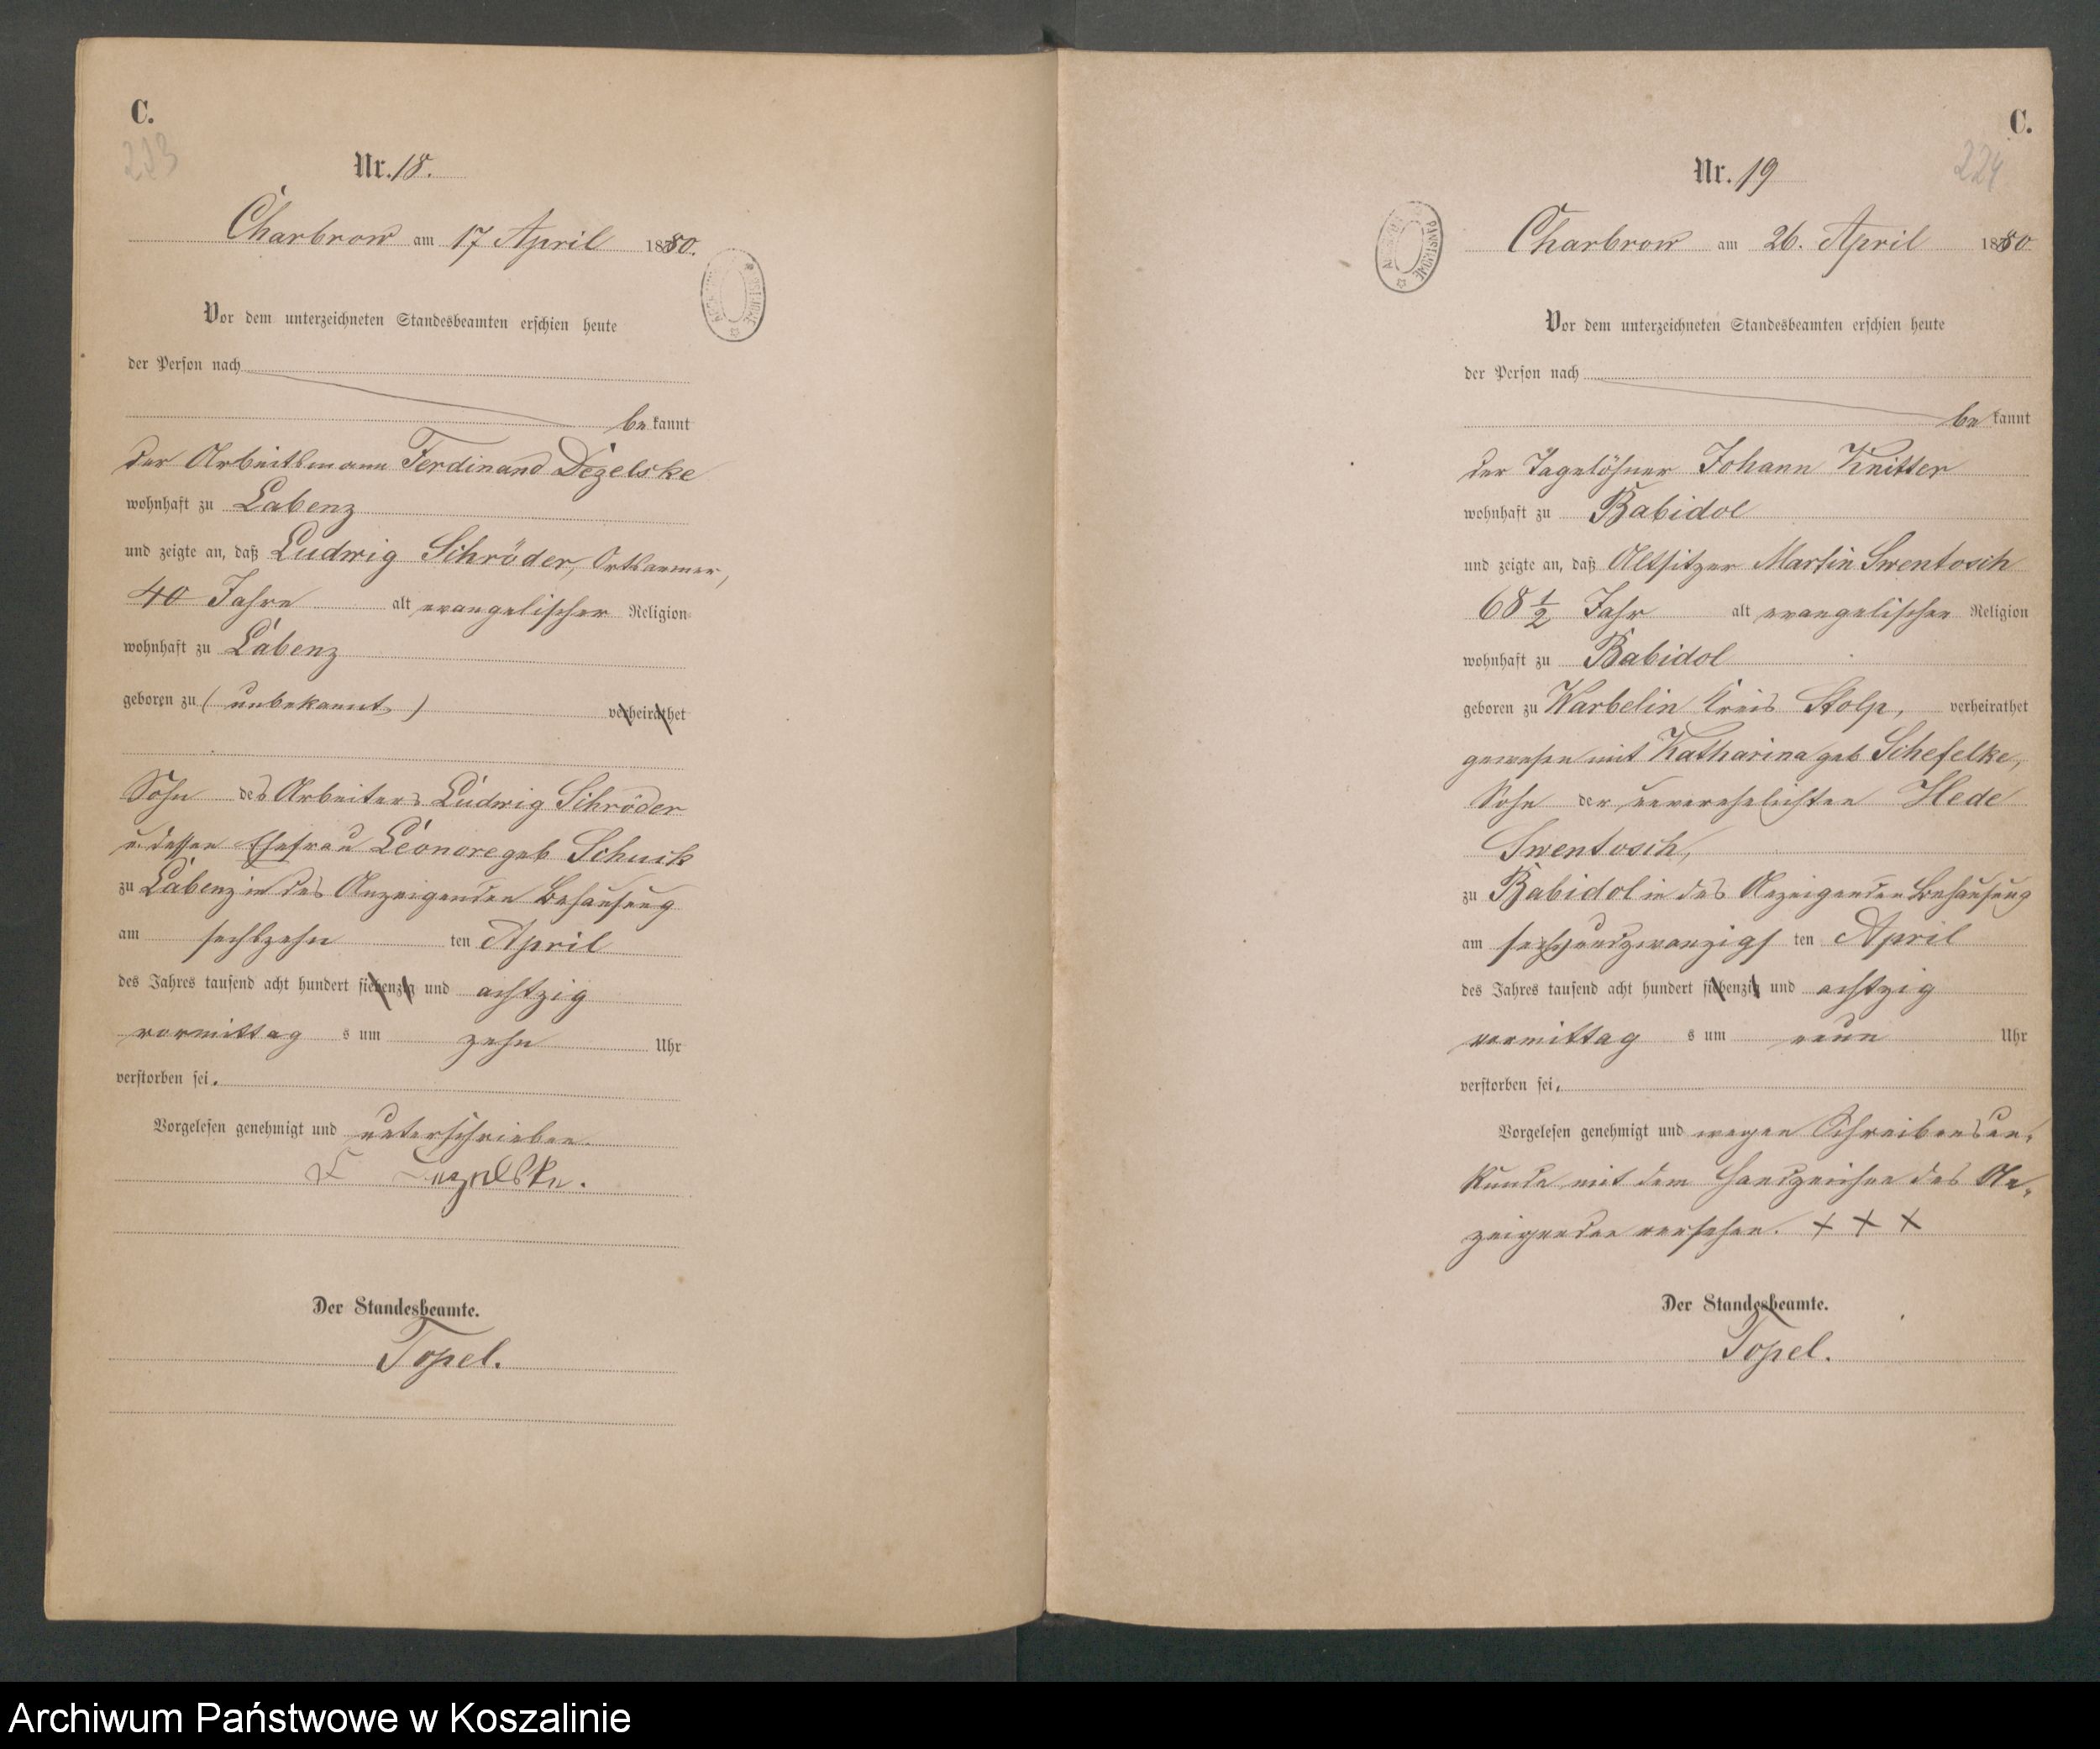 C.
223
Nr. 18.
Charbrow am 17 April 1880.
Vor dem unterzeichneten Standesbeamten erschien heute
der Person nach
bekannt
der Arbeitsmann Ferdinand Dezelske
wohnhaft zu Labenz
und zeigte an, daß Ludwig Schröder, Ortsarmer,
40 Jahre alt evangelischer Religion
wohnhaft zu Labenz
geboren zu (unbekannt) verheirathet
Sohn des Arbeiters Ludwig Schröder
u. dessen Ehefrau Leonore geb Schuik
zu Labenz in des Anzeigenden Behausung
am sechszehn ten April
des Jahres tausend acht hundert siebenzig und achtzig
vormittag s um zehn Uhr
verstorben sei.
Vorgelesen genehmigt und unterschrieben.
F Dezelske.
Der Standesbeamte.
Topel.
C.
224
Nr. 19
Charbrow am 26. April 1880
Vor dem unterzeichneten Standesbeamten erschien heute
der Person nach
bekannt
der Tagelöhner Johann Knitter
wohnhaft zu Babidol
und zeigte an, daß Altsitzer Martin Swentosch
68 1/2 Jahr alt evangelischer Religion
wohnhaft zu Babidol
geboren zu Warbelin Kreis Stolp, verheirathet
gewesen mit Katharina geb Schefelke,
Sohn der unverehelichten Hede
Swentosch,
zu Babidol in des Anzeigenden Behausung
am sechsundzwanzigs ten April
des Jahres tausend acht hundert siebenzig und achtzig
vormittag s um neun Uhr
verstorben sei.
Vorgelesen genehmigt und wegen Schreibensun-
kunde mit dem Handzeichen des An-
zeigenden versehen. + + +
Der Standesbeamte.
Topel.
Archiwum Państwowe w Koszalinie